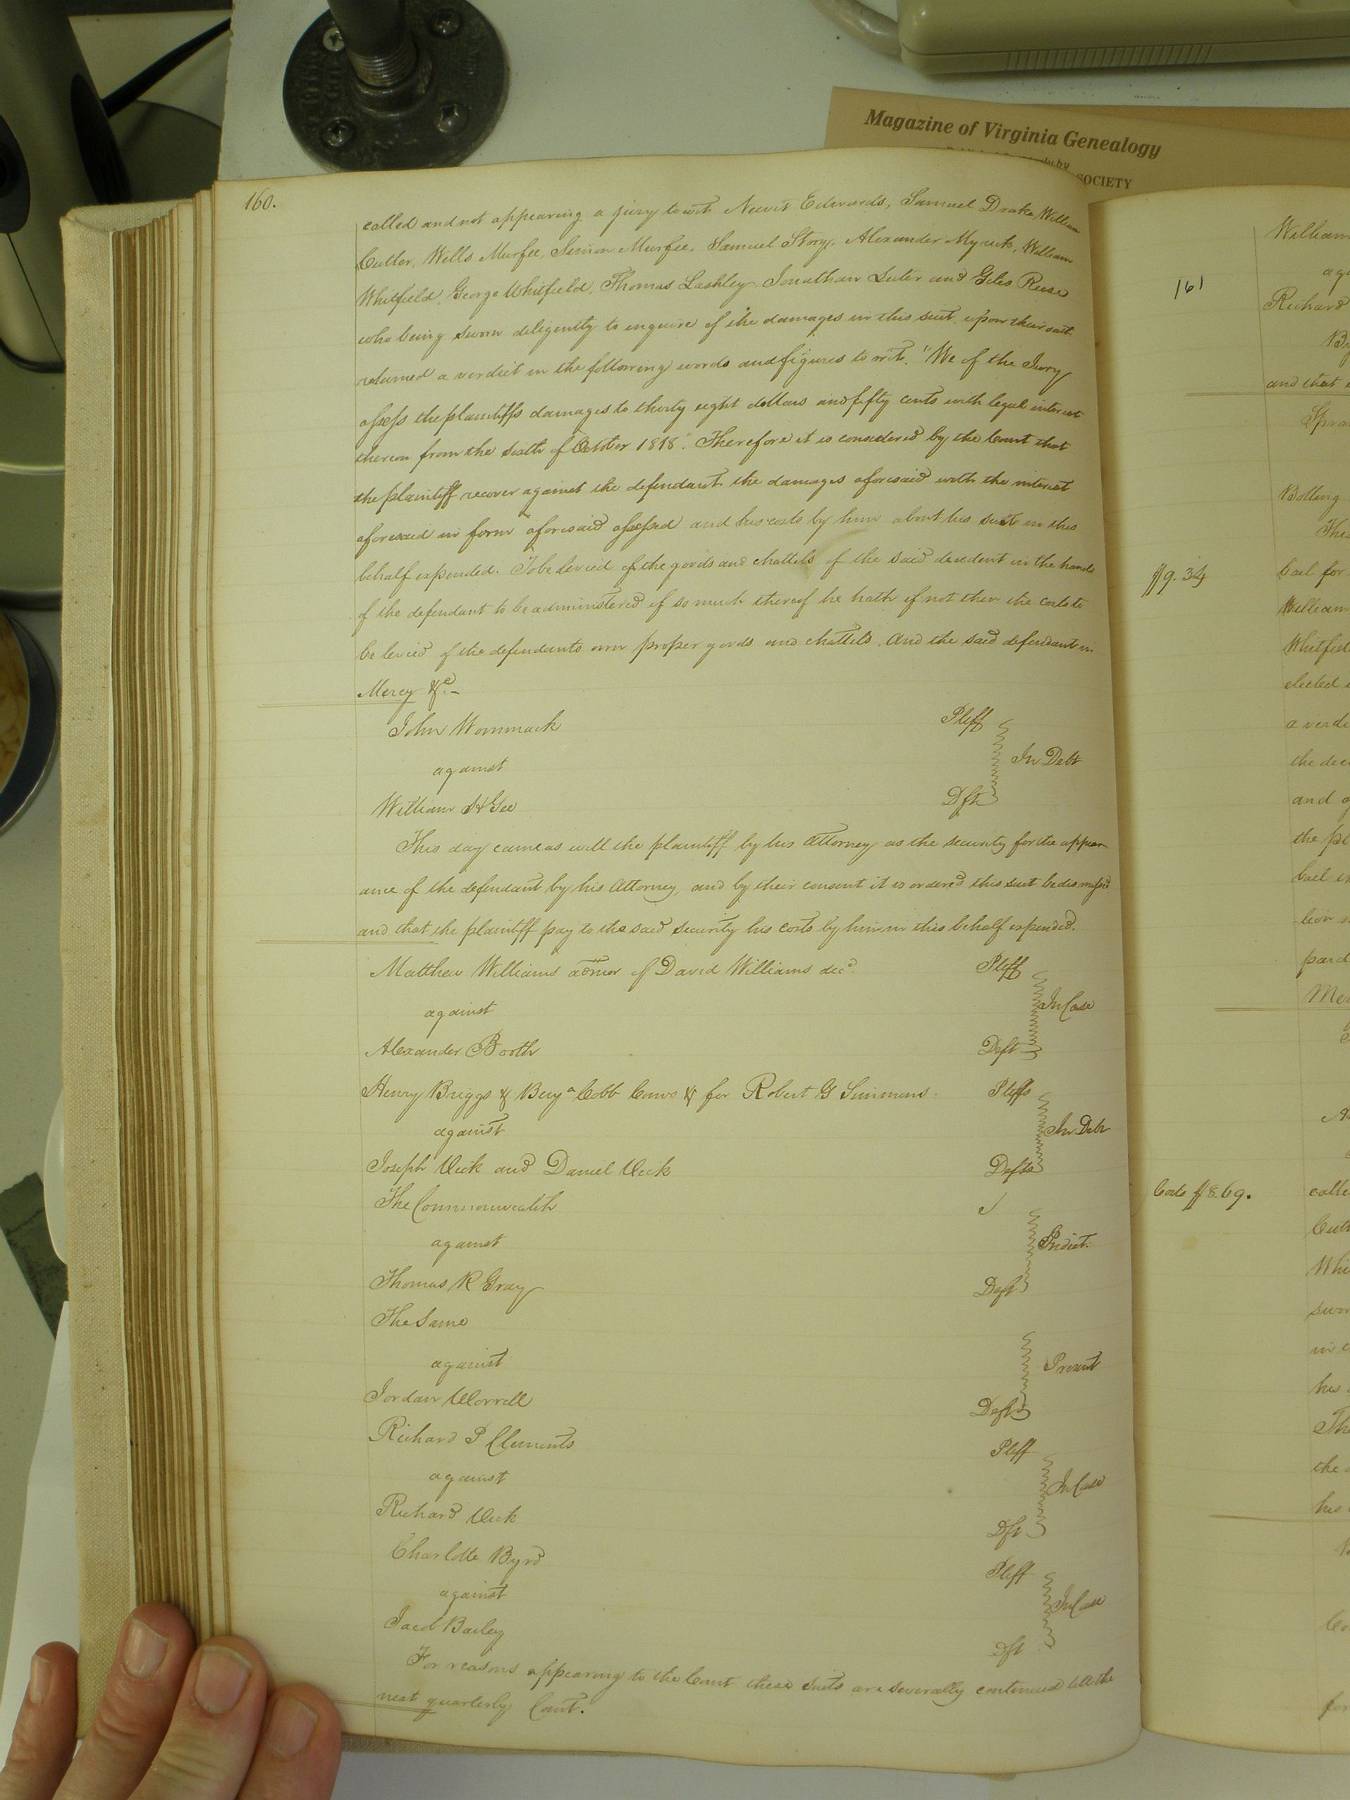 Magazine of Virginia Genealogy
SOCIETY
160.
called and not appearing a jury to wit Newit Edwards, Samuel Drake, William
Cutler, Wills Murfee, Simon Murfee, Samuel Story, Alexander Myrick, William
Whitfield, George Whitfield, Thomas Lashley, Jonathan Luter and Giles Reese
who being sworn diligently to inquire of the damages in this suit, upon their oath
returned a verdict in the following words and figures to wit. "We of the Jury
assess the plaintiffs damages to thirty eight dollars and fifty cents with legal interest
thereon from the sixth of October 1818". Therefore it is considered by the Court that
the plaintiff recover against the defendant the damages aforesaid with the interest
aforesaid in form aforesaid assessed and his costs by him about his suit in this
behalf expended. To be levied of the goods and chattels of the said decedent in the hands
of the defendant to be administered if so much thereof he hath if not then the costs to
be levied of the defendants own proper goods and chattels. And the said defendant in
Mercy &c.-
John Wommack Pltff
against In Debt
William H Gee Dft
This day came as well the plaintiff by his attorney as the security for the appear
ance of the defendant by his attorney, and by their consent it is ordered this suit be dismissed
and that the plaintiff pay to the said security his costs by him in this behalf expended.
Matthew Williams admor of David Williams decd Pltff
against In Case
Alexander Booth Deft
Henry Briggs & Benja Cobb for Robert G Simmons Pltffs
against In Debt
Joseph Vick and Daniel Vick Defts
The Commonwealth
against Indict.
Thomas R Gray Deft
The Same
against Present
Jordan Worrell Deft
Richard P Clements Pltff
against In Case
Richard Vick Dft
Charlotte Byrd Pltff
against In Case
Jacob Bailey Dft
For reasons appearing to the Court these suits are severally continued till the
next quarterly Court.
161
William
Richard
and that
Bolling
$9.34
Cail for
William
Whitfield
elected
a verdi
the dec
and
the pl
bail
Costs $8.69.